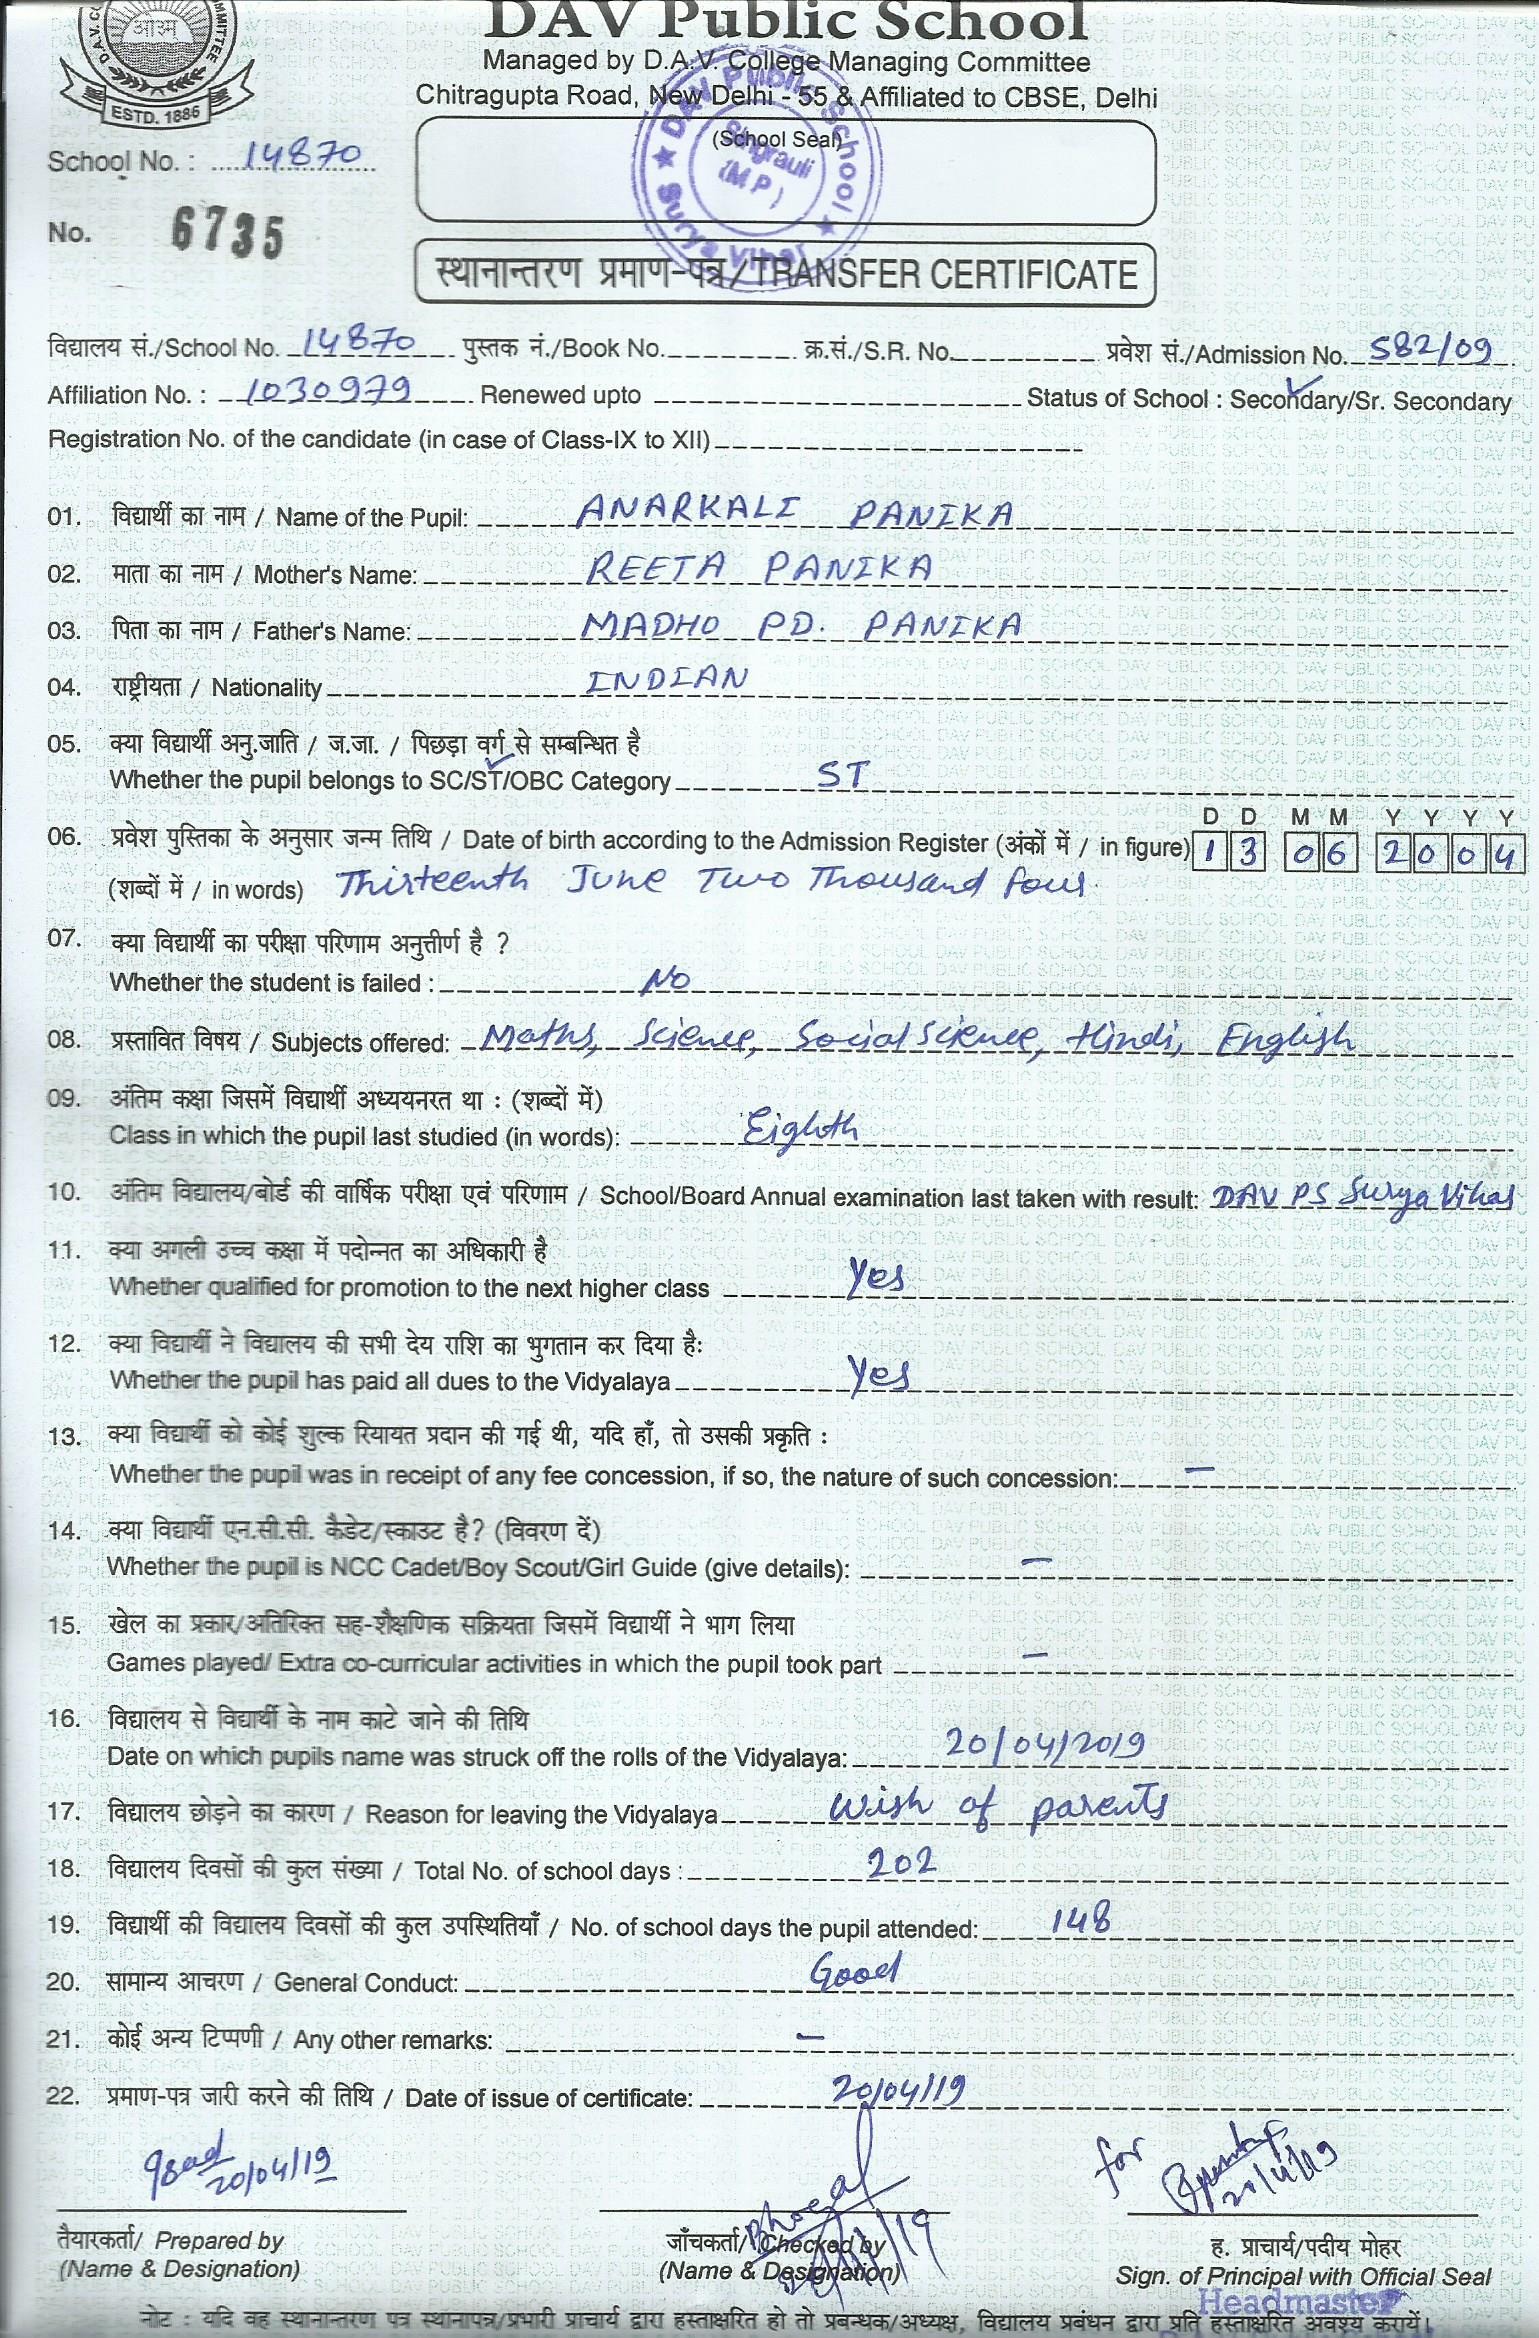 DAV Public School
Managed by D.A.V. College Managing Committee
Chitragupta Road, New Delhi - 55 & Affiliated to CBSE, Delhi
ओ३म्
ESTD. 1886
(School Seal)
DAV Public School
Singrauli
(M P)
Surya Vihar
School No. : 14870
No. 6735
स्थानान्तरण प्रमाण-पत्र/TRANSFER CERTIFICATE
विद्यालय सं./School No. 14870 पुस्तक नं./Book No. क्र.सं./S.R. No. प्रवेश सं./Admission No. 582/09
Affiliation No. : 1030979 Renewed upto Status of School : Secondary/Sr. Secondary
Registration No. of the candidate (in case of Class-IX to XII)
01. विद्यार्थी का नाम / Name of the Pupil: ANARKALI PANIKA
02. माता का नाम / Mother's Name: REETA PANIKA
03. पिता का नाम / Father's Name: MADHO PD. PANIKA
04. राष्ट्रीयता / Nationality INDIAN
05. क्या विद्यार्थी अनु.जाति / ज.जा. / पिछड़ा वर्ग से सम्बन्धित है
Whether the pupil belongs to SC/ST/OBC Category ST
D D M M Y Y Y Y
06. प्रवेश पुस्तिका के अनुसार जन्म तिथि / Date of birth according to the Admission Register (अंकों में / in figure) 13 06 2004
(शब्दों में / in words) Thirteenth June Two Thousand four.
07. क्या विद्यार्थी का परीक्षा परिणाम अनुत्तीर्ण है ?
Whether the student is failed : No
08. प्रस्तावित विषय / Subjects offered: Maths, Science, Social Science, Hindi, English
09. अंतिम कक्षा जिसमें विद्यार्थी अध्ययनरत था : (शब्दों में)
Class in which the pupil last studied (in words): Eighth
10. अंतिम विद्यालय/बोर्ड की वार्षिक परीक्षा एवं परिणाम / School/Board Annual examination last taken with result: DAV PS Surya Vihar
11. क्या अगली उच्च कक्षा में पदोन्नत का अधिकारी है
Whether qualified for promotion to the next higher class Yes
12. क्या विद्यार्थी ने विद्यालय की सभी देय राशि का भुगतान कर दिया है:
Whether the pupil has paid all dues to the Vidyalaya Yes
13. क्या विद्यार्थी को कोई शुल्क रियायत प्रदान की गई थी, यदि हाँ, तो उसकी प्रकृति :
Whether the pupil was in receipt of any fee concession, if so, the nature of such concession: —
14. क्या विद्यार्थी एन.सी.सी. कैडेट/स्काउट है? (विवरण दें)
Whether the pupil is NCC Cadet/Boy Scout/Girl Guide (give details): —
15. खेल का प्रकार/अतिरिक्त सह-शैक्षणिक सक्रियता जिसमें विद्यार्थी ने भाग लिया
Games played/ Extra co-curricular activities in which the pupil took part —
16. विद्यालय से विद्यार्थी के नाम काटे जाने की तिथि
Date on which pupils name was struck off the rolls of the Vidyalaya: 20/04/2019
17. विद्यालय छोड़ने का कारण / Reason for leaving the Vidyalaya wish of parents
18. विद्यालय दिवसों की कुल संख्या / Total No. of school days : 202
19. विद्यार्थी की विद्यालय दिवसों की कुल उपस्थितियाँ / No. of school days the pupil attended: 148
20. सामान्य आचरण / General Conduct: Good
21. कोई अन्य टिप्पणी / Any other remarks: —
22. प्रमाण-पत्र जारी करने की तिथि / Date of issue of certificate: 20/04/19
20/04/19
for
तैयारकर्ता/ Prepared by
(Name & Designation)
जाँचकर्ता/ Checked by
(Name & Designation)
ह. प्राचार्य/पदीय मोहर
Sign. of Principal with Official Seal
Headmaster
नोट : यदि वह स्थानान्तरण पत्र स्थानापन्न/प्रभारी प्राचार्य द्वारा हस्ताक्षरित हो तो प्रबन्धक/अध्यक्ष, विद्यालय प्रबंधन द्वारा प्रति हस्ताक्षरित अवश्य करायें।